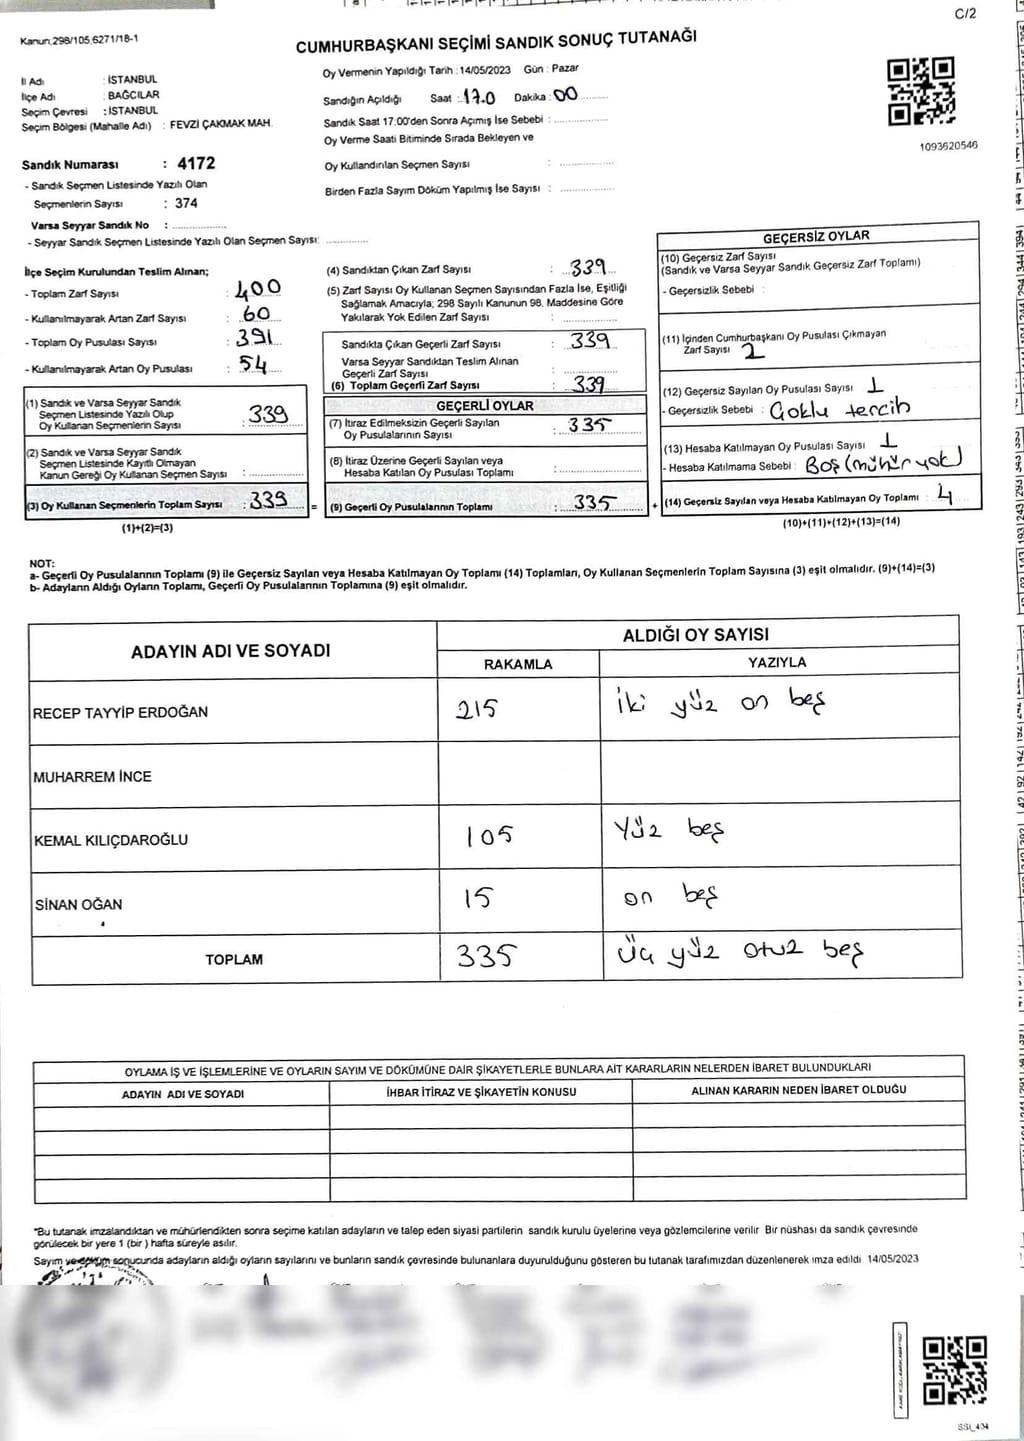 C/2
Kanun:298/105,6271/18-1
CUMHURBAŞKANI SEÇİMİ SANDIK SONUÇ TUTANAĞI
İl Adı : İSTANBUL
İlçe Adı : BAĞCILAR
Seçim Çevresi : İSTANBUL
Seçim Bölgesi (Mahalle Adı) : FEVZİ ÇAKMAK MAH.
Oy Vermenin Yapıldığı Tarih : 14/05/2023 Gün : Pazar
Sandığın Açıldığı Saat : 17.0 Dakika : 00
Sandık Saat 17:00'den Sonra Açımış İse Sebebi :
Oy Verme Saati Bitiminde Sırada Bekleyen ve
Oy Kullandırılan Seçmen Sayısı :
Birden Fazla Sayım Döküm Yapılmış İse Sayısı :
1093620546
Sandık Numarası : 4172
- Sandık Seçmen Listesinde Yazılı Olan
Seçmenlerin Sayısı : 374
Varsa Seyyar Sandık No :
- Seyyar Sandık Seçmen Listesinde Yazılı Olan Seçmen Sayısı:
İlçe Seçim Kurulundan Teslim Alınan;
- Toplam Zarf Sayısı : 400
- Kullanılmayarak Artan Zarf Sayısı : 60
- Toplam Oy Pusulası Sayısı : 391
- Kullanılmayarak Artan Oy Pusulası : 54
(1) Sandık ve Varsa Seyyar Sandık
Seçmen Listesinde Yazılı Olup
Oy Kullanan Seçmenlerin Sayısı : 339
(2) Sandık ve Varsa Seyyar Sandık
Seçmen Listesinde Kayıtlı Olmayan
Kanun Gereği Oy Kullanan Seçmen Sayısı :
(3) Oy Kullanan Seçmenlerin Toplam Sayısı : 339
(1)+(2)=(3)
(4) Sandıktan Çıkan Zarf Sayısı : 339
(5) Zarf Sayısı Oy Kullanan Seçmen Sayısından Fazla İse, Eşitliği
Sağlamak Amacıyla; 298 Sayılı Kanunun 98. Maddesine Göre
Yakılarak Yok Edilen Zarf Sayısı :
Sandıkta Çıkan Geçerli Zarf Sayısı : 339
Varsa Seyyar Sandıktan Teslim Alınan
Geçerli Zarf Sayısı :
(6) Toplam Geçerli Zarf Sayısı : 339
GEÇERLİ OYLAR
(7) İtiraz Edilmeksizin Geçerli Sayılan
Oy Pusulalarının Sayısı : 335
(8) İtiraz Üzerine Geçerli Sayılan veya
Hesaba Katılan Oy Pusulası Toplamı :
= (9) Geçerli Oy Pusulalarının Toplamı : 335 +
GEÇERSİZ OYLAR
(10) Geçersiz Zarf Sayısı
(Sandık ve Varsa Seyyar Sandık Geçersiz Zarf Toplamı)
- Geçersizlik Sebebi :
(11) İçinden Cumhurbaşkanı Oy Pusulası Çıkmayan
Zarf Sayısı 2
(12) Geçersiz Sayılan Oy Pusulası Sayısı : 1
- Geçersizlik Sebebi : Çoklu tercih
(13) Hesaba Katılmayan Oy Pusulası Sayısı : 1
- Hesaba Katılmama Sebebi : Boş (mühür yok)
(14) Geçersiz Sayılan veya Hesaba Katılmayan Oy Toplamı : 4
(10)+(11)+(12)+(13)=(14)
NOT:
a- Geçerli Oy Pusulalarının Toplamı (9) ile Geçersiz Sayılan veya Hesaba Katılmayan Oy Toplamı (14) Toplamları, Oy Kullanan Seçmenlerin Toplam Sayısına (3) eşit olmalıdır. (9)+(14)=(3)
b- Adayların Aldığı Oyların Toplamı, Geçerli Oy Pusulalarının Toplamına (9) eşit olmalıdır.
ADAYIN ADI VE SOYADI ALDIĞI OY SAYISI
RAKAMLA YAZIYLA
RECEP TAYYİP ERDOĞAN 215 iki yüz on beş
MUHARREM İNCE
KEMAL KILIÇDAROĞLU 105 Yüz beş
SİNAN OĞAN 15 on beş
TOPLAM 335 üç yüz otuz beş
OYLAMA İŞ VE İŞLEMLERİNE VE OYLARIN SAYIM VE DÖKÜMÜNE DAİR ŞİKAYETLERLE BUNLARA AİT KARARLARIN NELERDEN İBARET BULUNDUKLARI
ADAYIN ADI VE SOYADI İHBAR İTİRAZ VE ŞİKAYETİN KONUSU ALINAN KARARIN NEDEN İBARET OLDUĞU
"Bu tutanak imzalandıktan ve mühürlendikten sonra seçime katılan adayların ve talep eden siyasi partilerin sandık kurulu üyelerine veya gözlemcilerine verilir Bir nüshası da sandık çevresinde
görülecek bir yere 1 (bir ) hafta süreyle asılır.
Sayım ve döküm sonucunda adayların aldığı oyların sayılarını ve bunların sandık çevresinde bulunanlara duyurulduğunu gösteren bu tutanak tarafımızdan düzenlenerek imza edildi 14/05/2023
SSI_434